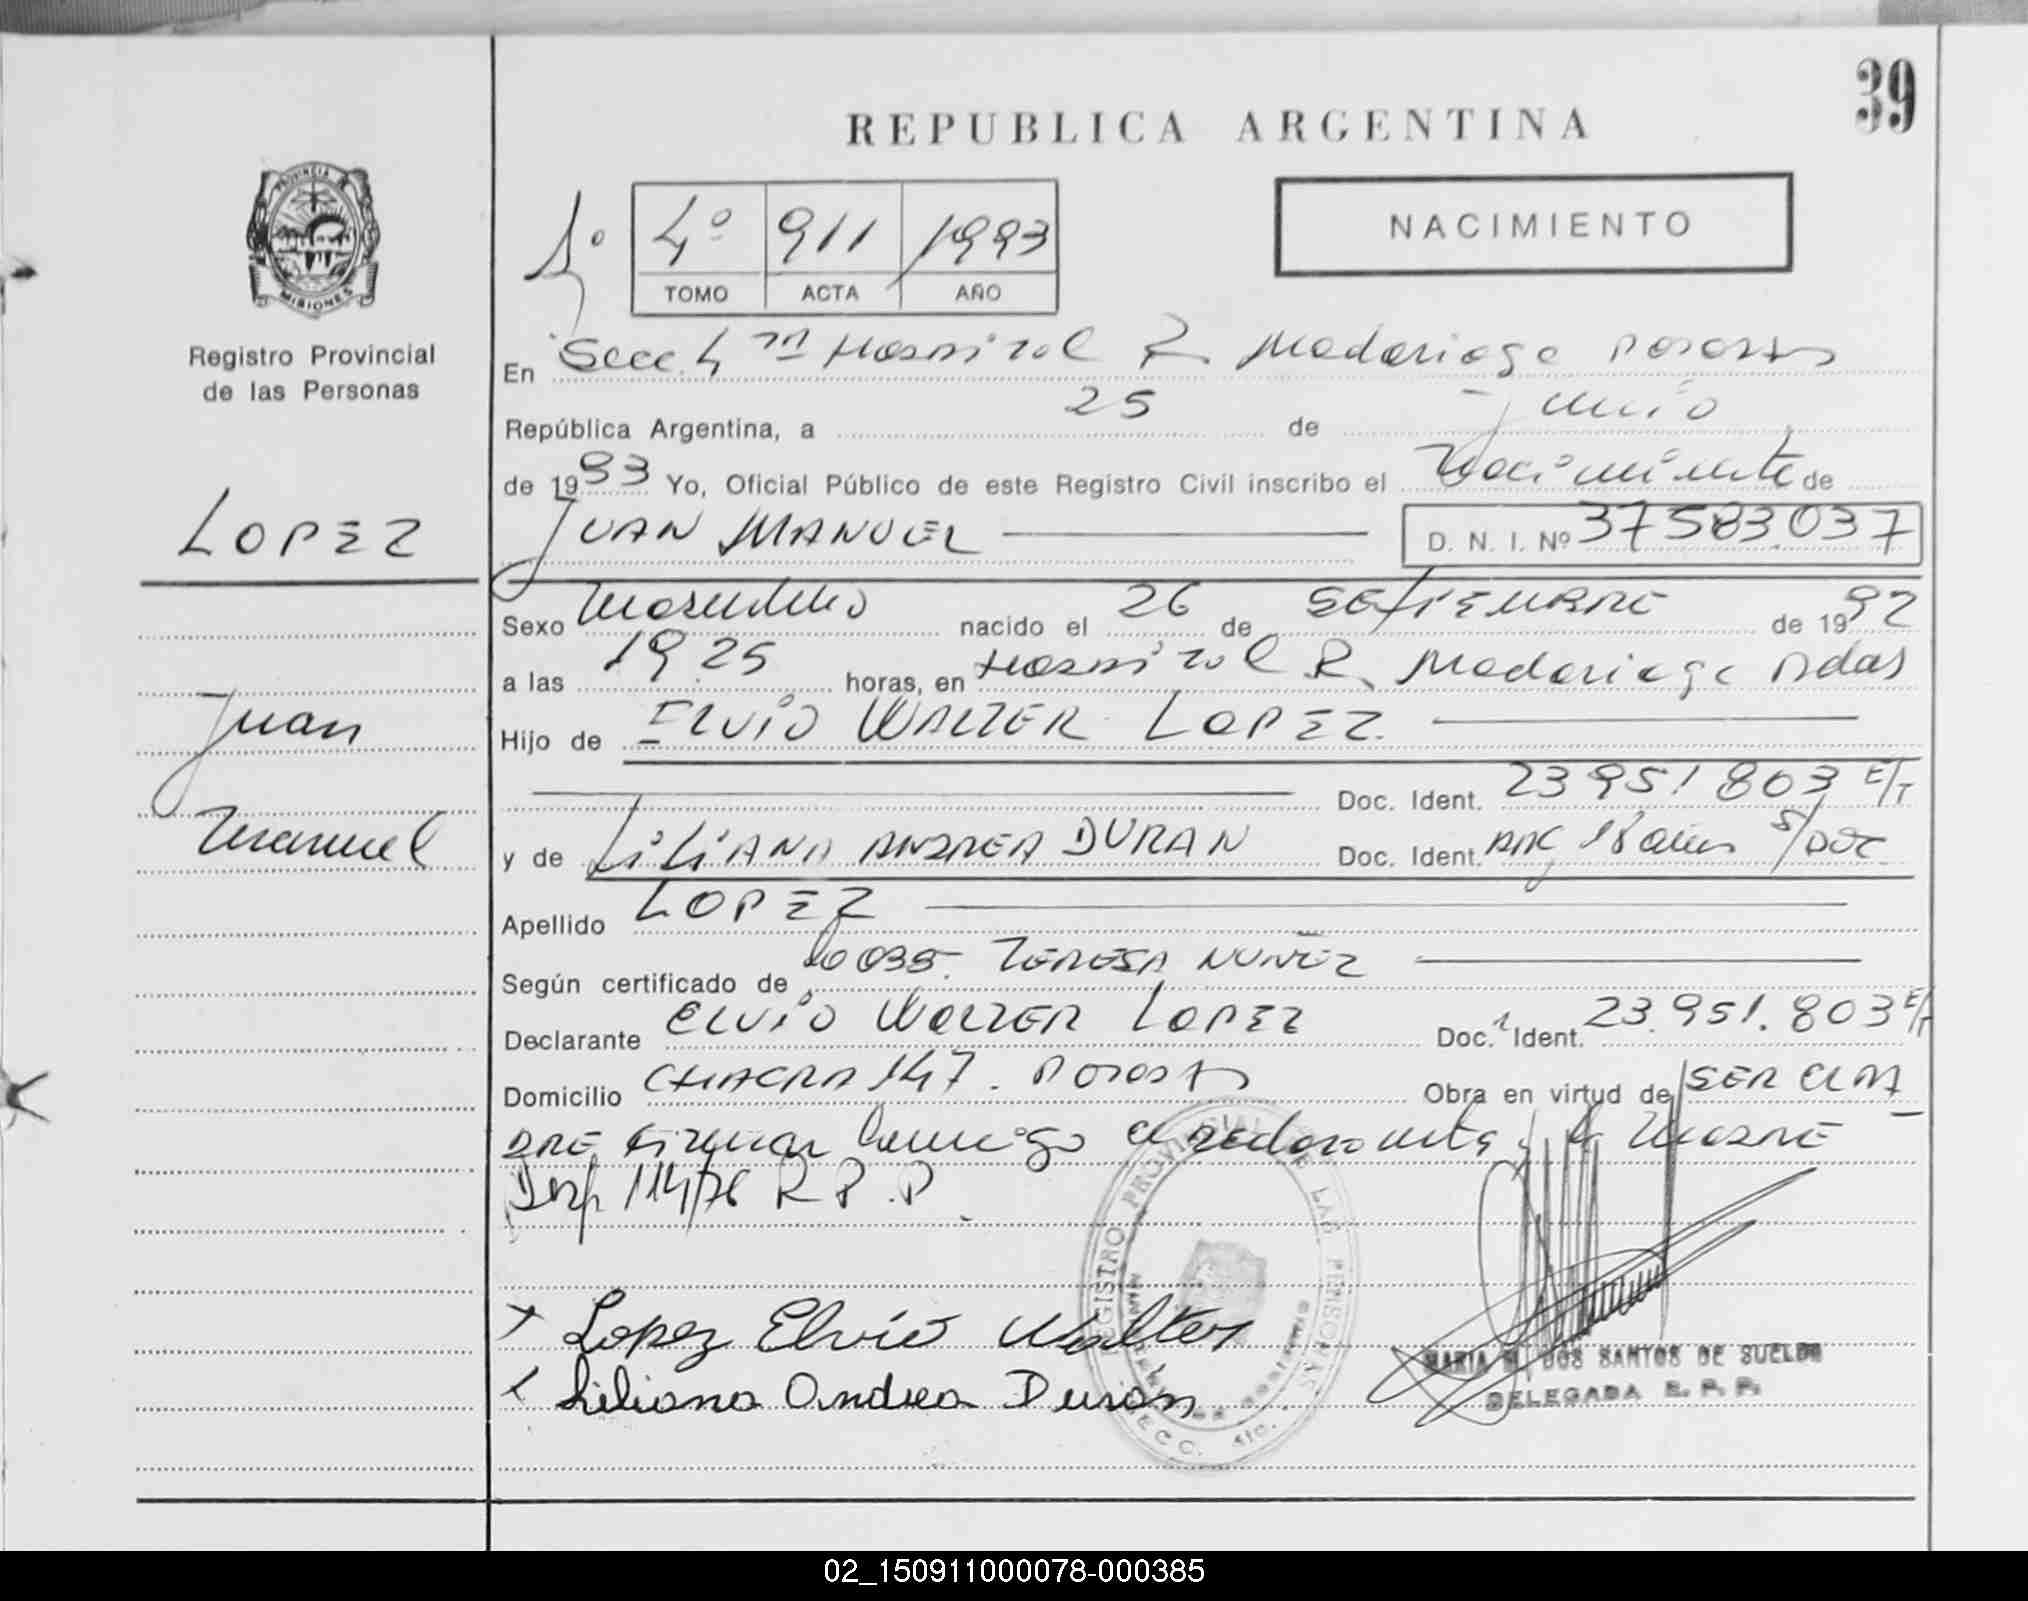 39
REPUBLICA ARGENTINA
PROVINCIA DE
MISIONES
Registro Provincial
de las Personas
1º
4º 911 1993
TOMO ACTA AÑO
NACIMIENTO
En Secc. 4ta Hospital R. Madariaga Posadas
República Argentina, a 25 de Junio
de 1993 Yo, Oficial Público de este Registro Civil inscribo el Nacimiento de
LOPEZ
JUAN MANUEL D. N. I. Nº 37583.037
Sexo Masculino nacido el 26 de SETIEMBRE de 1992
a las 19 25 horas, en Hospital R. Madariaga Pdas
Juan
Manuel
Hijo de ELVIO WALTER LOPEZ
Doc. Ident. 23 951 803 E/T
y de LILIANA ANDREA DURAN Doc. Ident. Arg 18 años S/DOC
Apellido LOPEZ
Según certificado de TERESA NUÑEZ
Declarante ELVIO WALTER LOPEZ Doc. Ident. 23.951.803 E/T
Domicilio CHACRA 147. Posadas Obra en virtud de SER EL PA
DRE Firman conmigo el declarante y la MADRE
Disp 114/76 R.P.P.
REGISTRO PROVINCIAL DE LAS PERSONAS
x Lopez Elvio Walter
x Liliana Andrea Durán
MARIA M. DOS SANTOS DE SUELDO
DELEGADA R. P. P.
02_150911000078-000385